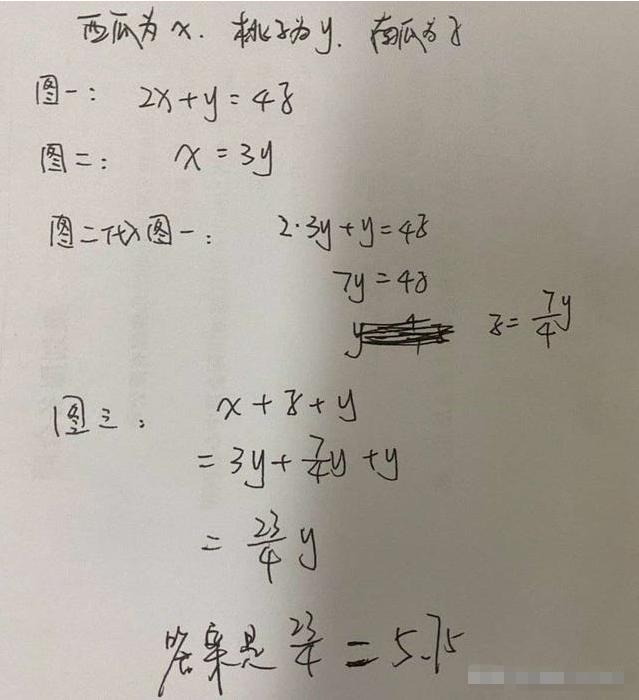 西瓜为x. 桃子为y. 南瓜为z
图一: 2x+y=4z
图二: x=3y
图二代入图一: 2·3y+y=4z
7y=4z
y z=7/4y
图三: x+z+y
=3y+7/4y+y
=23/4y
答案是23/4=5.75